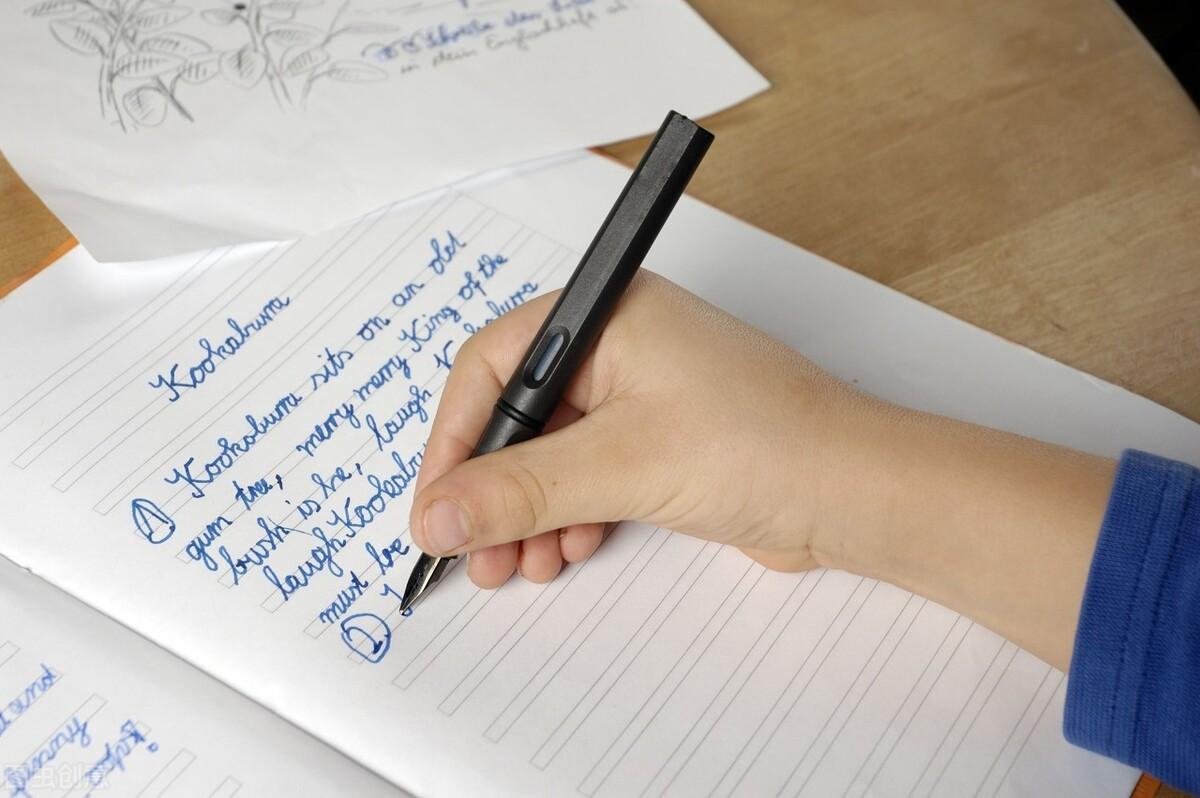 Schreibe den
in dein Englischheft ab.
Kookaburra
① Kookaburra sits on an old
gum tree, merry merry King of the
bush is he, laugh K
laugh Kookabu
must be
②
and
图虫创意